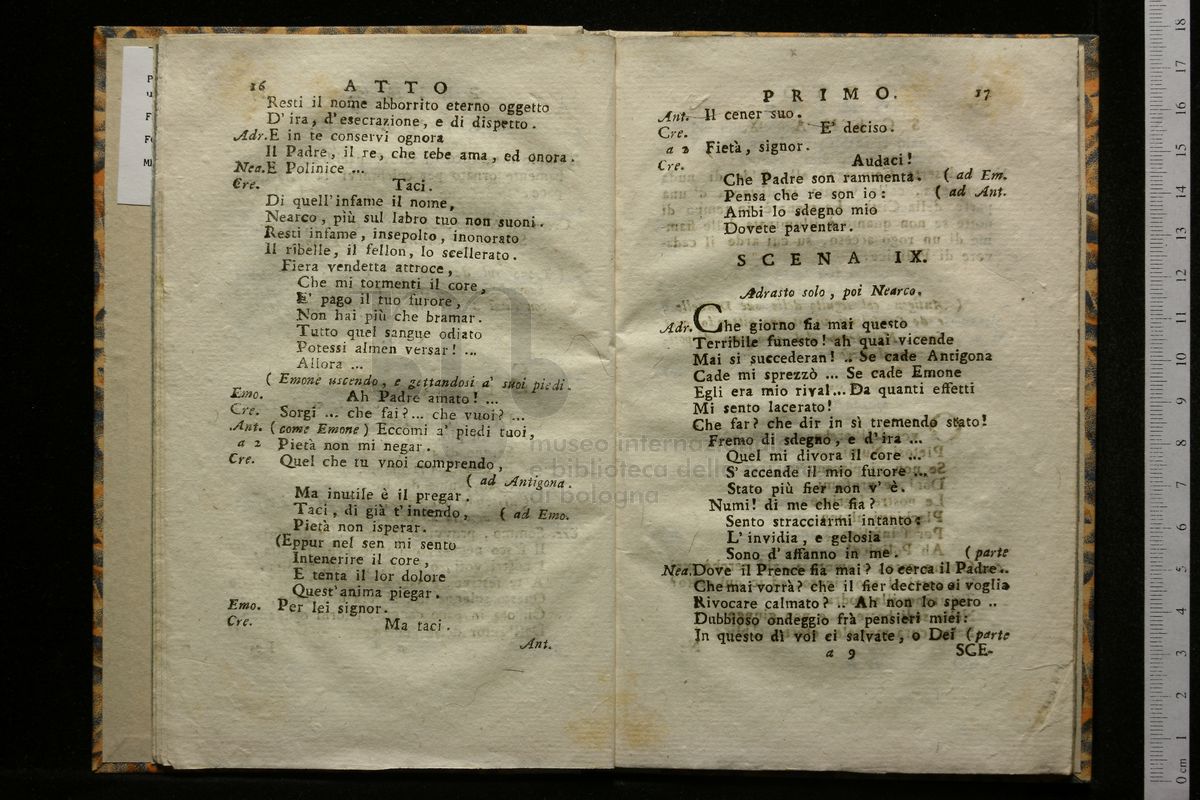 16 ATTO
Resti il nome abborrito eterno oggetto
D' ira, d'esecrazione, e di dispetto.
Adr. E in te conservi ognora
Il Padre, il re, che tebe ama, ed onora.
Nea. E Polinice ...
Cre. Taci.
Di quell'infame il nome,
Nearco, più sul labro tuo non suoni.
Resti infame, insepolto, inonorato
Il ribelle, il fellon, lo scellerato.
Fiera vendetta attroce,
Che mi tormenti il core,
E' pago il tuo furore,
Non hai più che bramar.
Tutto quel sangue odiato
Potessi almen versar! ...
Allora ...
( Emone uscendo, e gettandosi a' suoi piedi.
Emo. Ah Padre amato! ...
Cre. Sorgi ... che fai?... che vuoi? ...
Ant. (come Emone) Eccomi a' piedi tuoi,
a 2 Pietà non mi negar.
Cre. Quel che tu vnoi comprendo,
( ad Antigona.
Ma inutile è il pregar.
Taci, di già t'intendo, ( ad Emo.
Pietà non isperar.
(Eppur nel sen mi sento
Intenerire il core,
E tenta il lor dolore
Quest'anima piegar.
Emo. Per lei signor.
Cre. Ma taci.
Ant.
PRIMO. 17
Ant. Il cener suo.
Cre. E' deciso.
a 2 Fietà, signor.
Cre. Audaci!
Che Padre son rammenta. ( ad Em.
Pensa che re son io: ( ad Ant.
Ambi lo sdegno mio
Dovete paventar.
SCENA IX.
Adrasto solo, poi Nearco.
Adr. Che giorno fia mai questo
Terribile funesto! ah quai vicende
Mai si succederan! .. Se cade Antigona
Cade mi sprezzò ... Se cade Emone
Egli era mio rival... Da quanti effetti
Mi sento lacerato!
Che far? che dir in sì tremendo stato!
Fremo di sdegno, e d'ira ...
Quel mi divora il core ...
S' accende il mio furore ...
Stato più fier non v' è.
Numi! di me che fia?
Sento stracciarmi intanto:
L' invidia, e gelosia
Sono d' affanno in me. (parte
Nea. Dove il Prence fia mai? lo cerca il Padre..
Che mai vorrà? che il fier decreto ei voglia
Rivocare calmato? .. Ah non lo spero ..
Dubbioso ondeggio frà pensieri miei:
In questo dì voi ci salvate, o Dei (parte
a 9 SCE-
museo internaz
e biblioteca della
di bologna
0 cm 1 2 3 4 5 6 7 8 9 10 11 12 13 14 15 16 17 18